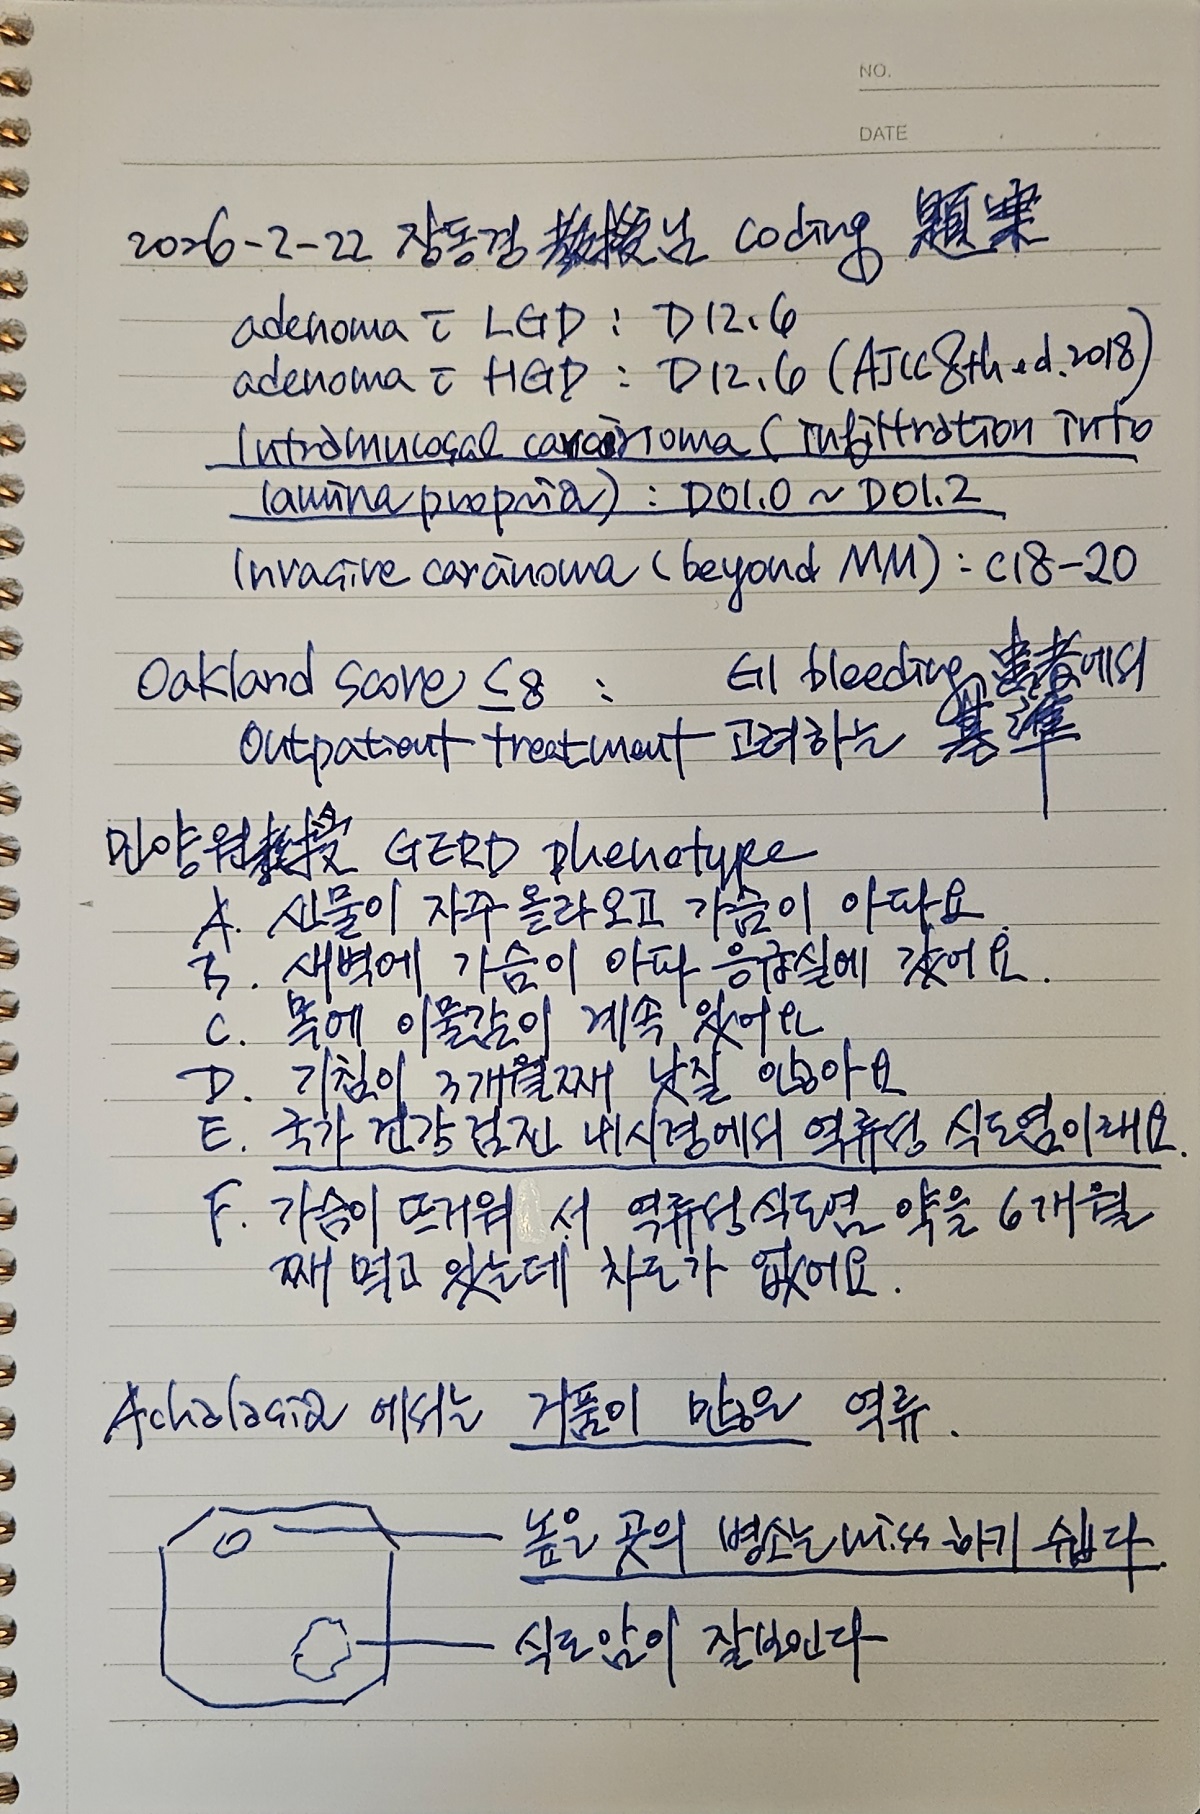 NO.
DATE
2026-2-22 장동경 教授님 coding 題案
adenoma c̄ LGD : D12.6
adenoma c̄ HGD : D12.6 (AJCC 8th ed. 2018)
Intramucosal carcinoma (infiltration into
lamina propria) : D01.0 ~ D01.2
Invasive carcinoma (beyond MM) : C18-20
Oakland score ≤8 : GI bleeding 患者에서
Outpatient treatment 고려하는 基準
민양원 教授 GERD phenotype
A. 신물이 자주 올라오고 가슴이 아파요
B. 새벽에 가슴이 아파 응급실에 갔어요.
C. 목에 이물감이 계속 있어요
D. 기침이 3개월째 낫질 않아요
E. 국가 건강 검진 내시경에서 역류성 식도염이래요.
F. 가슴이 뜨거워서 역류성 식도염 약을 6개월
째 먹고 있는데 차도가 없어요.
Achalasia 에서는 거품이 많은 역류.
높은 곳의 병소는 miss 하기 쉽다
식도암이 잘 보인다